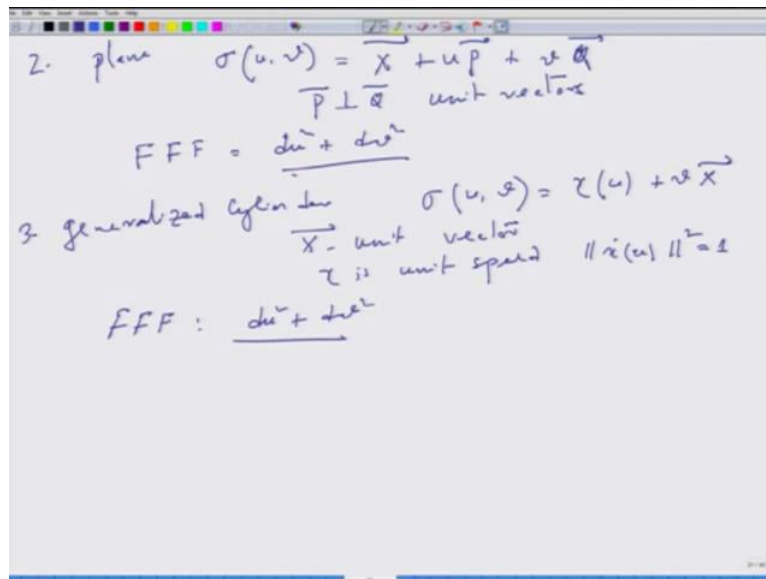 2. plane σ(u, v) = X⃗ + u P⃗ + v Q⃗
P⃗ ⊥ Q⃗ unit vectors
FFF = du² + dv²
3 generalized cylinder σ(u, v) = γ(u) + v X⃗
X⃗ - unit vector
γ is unit speed ||γ̇(u)||² = 1
FFF : du² + dv²